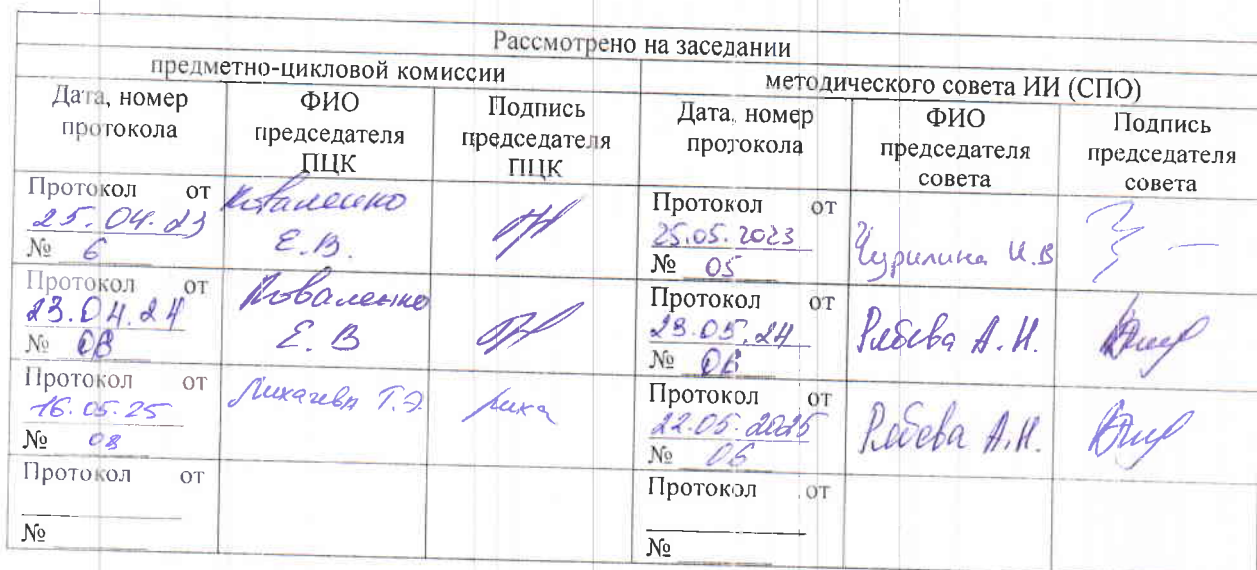 Рассмотрено на заседании
предметно-цикловой комиссии
методического совета ИИ (СПО)
Дата, номер
протокола
ФИО
председателя
ПЦК
Подпись
председателя
ПЦК
Дата, номер
протокола
ФИО
председателя
совета
Подпись
председателя
совета
Протокол от
25.04.23
№ 6
Коваленко
Е.В.
Протокол от
25.05.2023
№ 05
Чурилина И.В
Протокол от
23.04.24
№ 08
Коваленко
Е.В
Протокол от
23.05.24
№ 06
А.Н.
Протокол от
16.05.25
№ 08
Лихачева Т.Э.
Лиха
Протокол от
22.05.2025
№ 06
А.Н.
Протокол от
№
Протокол от
№